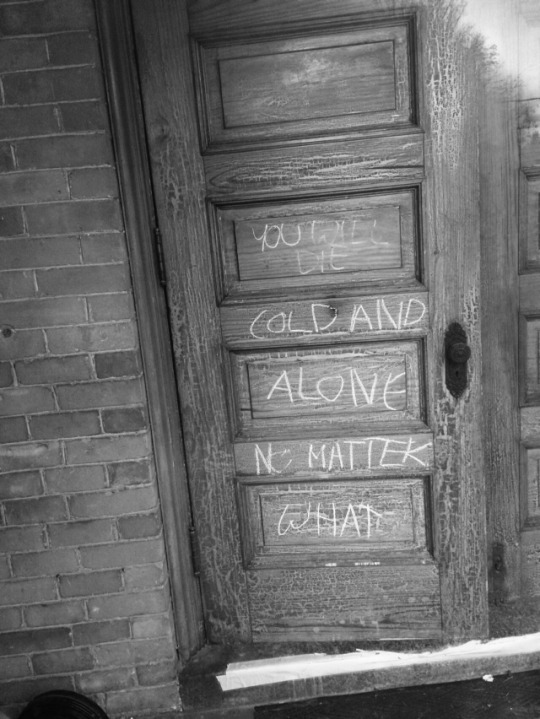 YOU WILL
DIE
COLD AND
ALONE
NO MATTER
WHAT